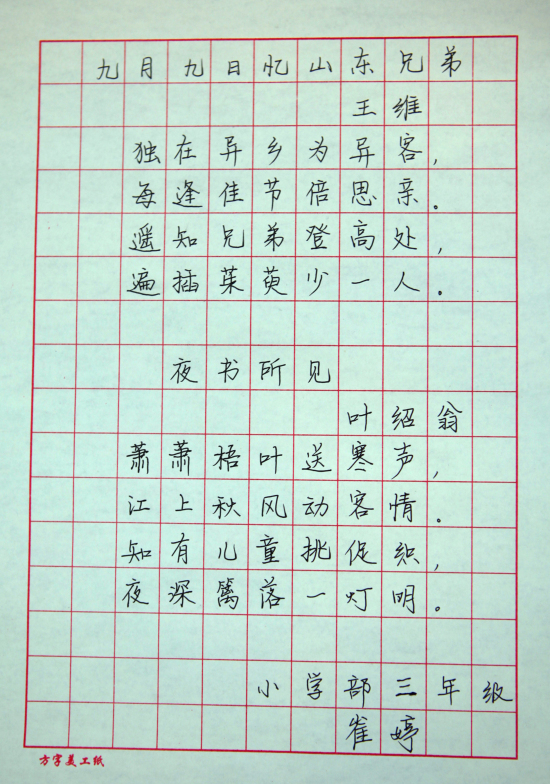 九月九日忆山东兄弟
王维
独在异乡为异客，
每逢佳节倍思亲。
遥知兄弟登高处，
遍插茱萸少一人。
夜书所见
叶绍翁
萧萧梧叶送寒声，
江上秋风动客情。
知有儿童挑促织，
夜深篱落一灯明。
小学部三年级
崔婷
方字美工纸